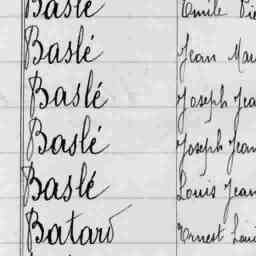 Baslé Emile Pie
Baslé Jean Mar
Baslé Joseph Jea
Baslé Joseph Jean
Baslé Louis Jean
Batard Ernest Loui